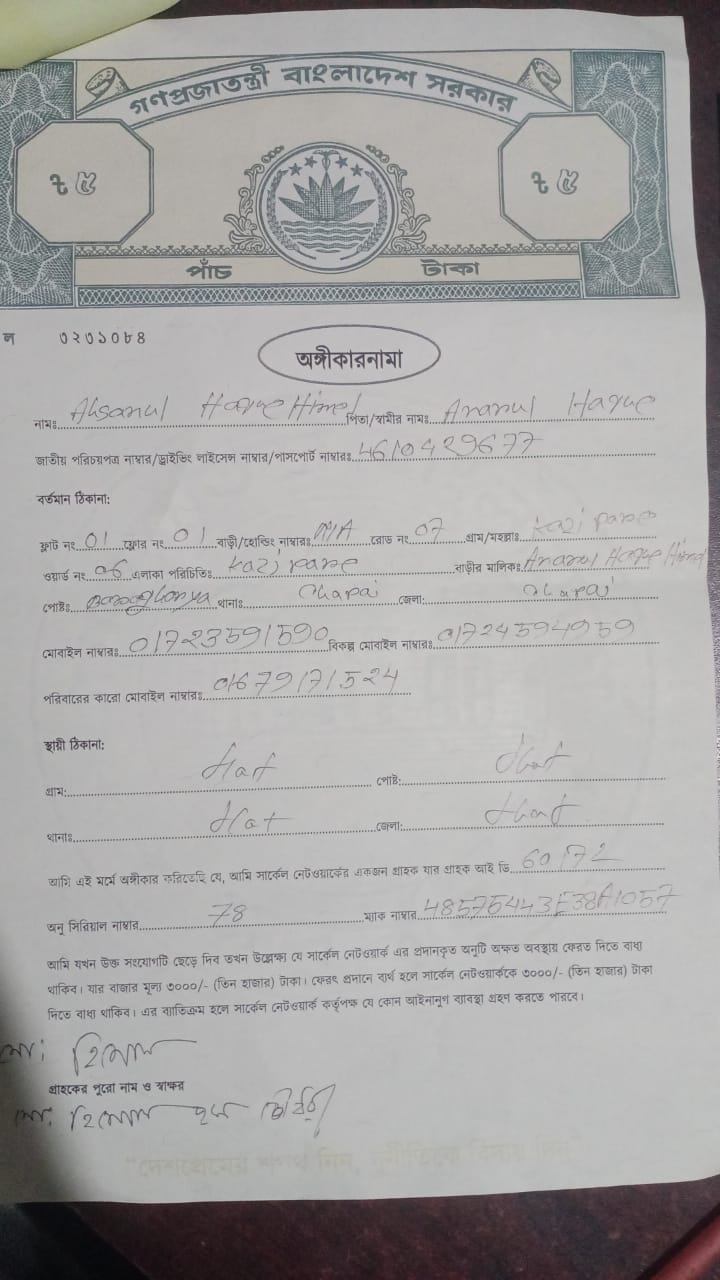 গণপ্রজাতন্ত্রী বাংলাদেশ সরকার
৳ ৫ ৳ ৫
পাঁচ টাকা
ল ৩২৩১০৮৪
অঙ্গীকারনামা
নামঃ Ahsanul Haque Himel পিতা/স্বামীর নামঃ Anamul Haque
জাতীয় পরিচয়পত্র নাম্বার/ড্রাইভিং লাইসেন্স নাম্বার/পাসপোর্ট নাম্বারঃ 4610429677
বর্তমান ঠিকানা:
ফ্লাট নং 01 ফ্লোর নং 01 বাড়ী/হোল্ডিং নাম্বারঃ N/A রোড নং 07 গ্রাম/মহল্লাঃ Kazi para
ওয়ার্ড নং 06 এলাকা পরিচিতিঃ Kazi para বাড়ীর মালিকঃ Anamul Haque
পোষ্টঃ থানাঃ জেলা:
মোবাইল নাম্বারঃ 01723591590 বিকল্প মোবাইল নাম্বারঃ 01724594959
পরিবারের কারো মোবাইল নাম্বারঃ 01679171524
স্থায়ী ঠিকানা:
গ্রাম: পোষ্ট:
থানাঃ জেলা:
আমি এই মর্মে অঙ্গীকার করিতেছি যে, আমি সার্কেল নেটওয়ার্কের একজন গ্রাহক যার গ্রাহক আই ডি 60172
অনু সিরিয়াল নাম্বার 78 ম্যাক নাম্বার 48575443E38A1057
আমি যখন উক্ত সংযোগটি ছেড়ে দিব তখন উল্লেখ্য যে সার্কেল নেটওয়ার্ক এর প্রদানকৃত অনুটি অক্ষত অবস্থায় ফেরত দিতে বাধ্য
থাকিব। যার বাজার মূল্য ৩০০০/- (তিন হাজার) টাকা। ফেরৎ প্রদানে ব্যর্থ হলে সার্কেল নেটওয়ার্ককে ৩০০০/- (তিন হাজার) টাকা
দিতে বাধ্য থাকিব। এর ব্যতিক্রম হলে সার্কেল নেটওয়ার্ক কর্তৃপক্ষ যে কোন আইনানুগ ব্যবস্থা গ্রহণ করতে পারবে।
মো: হিমেল
গ্রাহকের পুরো নাম ও স্বাক্ষর
মো: হিমেল হক চৌধুরী